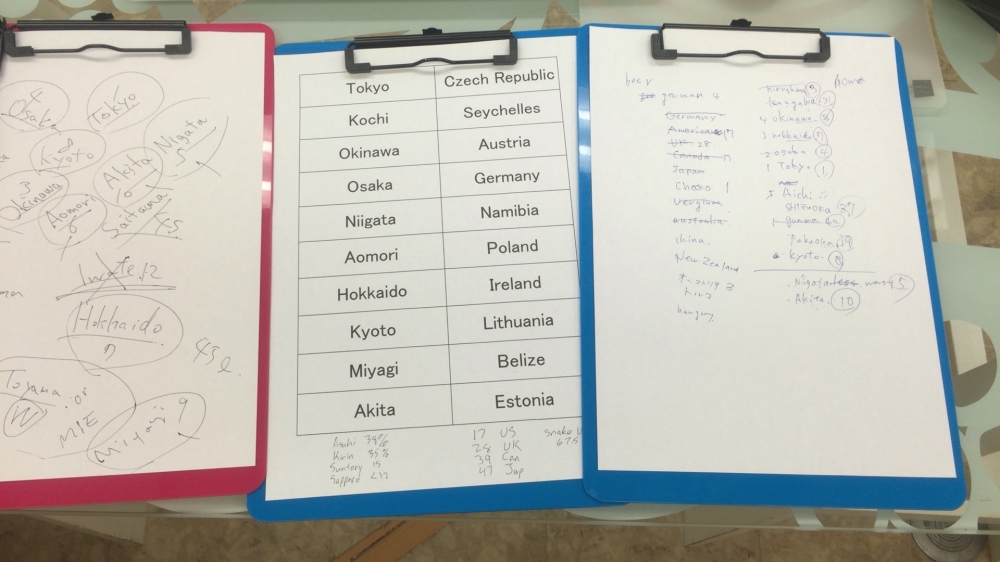 Osaka
Tokyo
Kyoto
Niigata
3
Okinawa
Aomori
Akita
Saitama
Iwate 12
Hokkaido
n
Toyama
MIE
Miyagi 9
Tokyo Czech Republic
Kochi Seychelles
Okinawa Austria
Osaka Germany
Niigata Namibia
Aomori Poland
Hokkaido Ireland
Kyoto Lithuania
Miyagi Belize
Akita Estonia
Asahi 38%
Kirin 35%
Suntory 15
Sapporo <12
17 US
28 UK
39 Can
47 Jap
67.5
german 4
Germany
America
UK 28
Canada
Japan
Cheako 1
australia
china
New Zealand
オーストリア 3
トルコ
hungry
4 okinawa 8
3 hokkaido
2 osaka 4
1 Tokyo 1
5 Aichi
SHIZUOKA 37
gunma
Fukuoka 19
Kyoto 8
Nigata 5
Akita 10